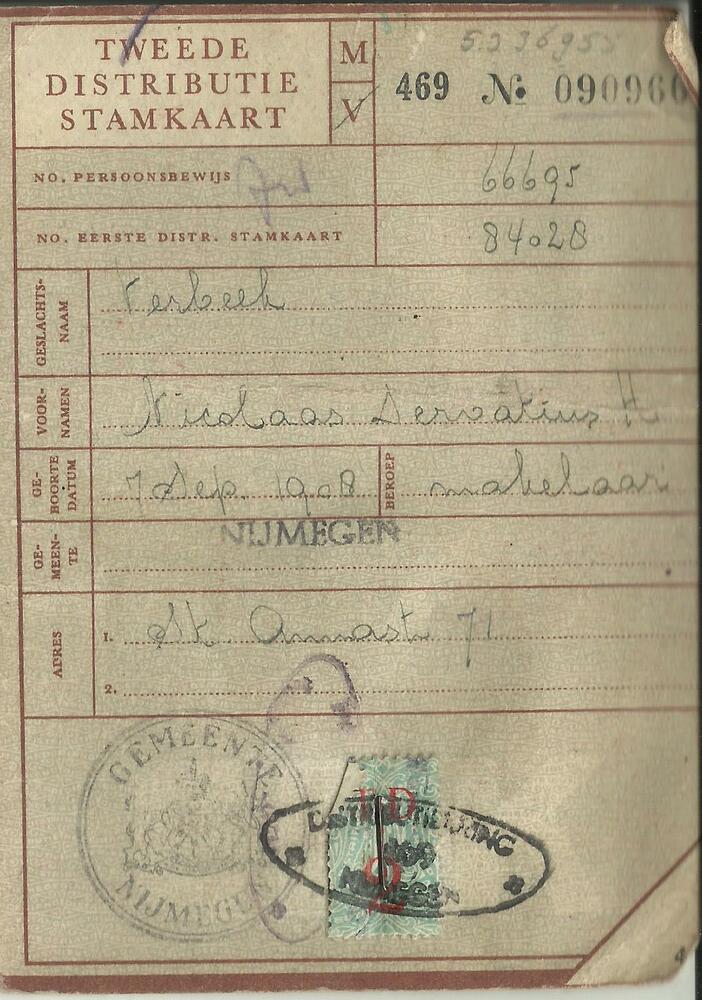 TWEEDE
DISTRIBUTIE
STAMKAART
M
V
469 № 090960
NO. PERSOONSBEWIJS
66695
NO. EERSTE DISTR. STAMKAART
84028
GESLACHTS-
NAAM
Verbeek
VOOR-
NAMEN
Nicolaas Servatius H
GE-
BOORTE
DATUM
7 Sep. 1908
BEROEP
makelaar
GE-
MEEN-
TE
NIJMEGEN
ADRES
1. St. Annastr 71
2.
GEMEENTE
NIJMEGEN
D
2
DISTRIBUTIEKRING
469
NIJMEGEN
4